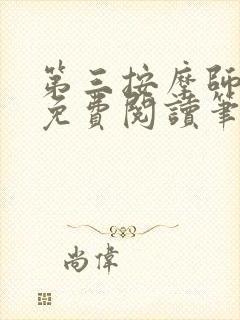 第三按摩師
免費閱讀筆
尚偉